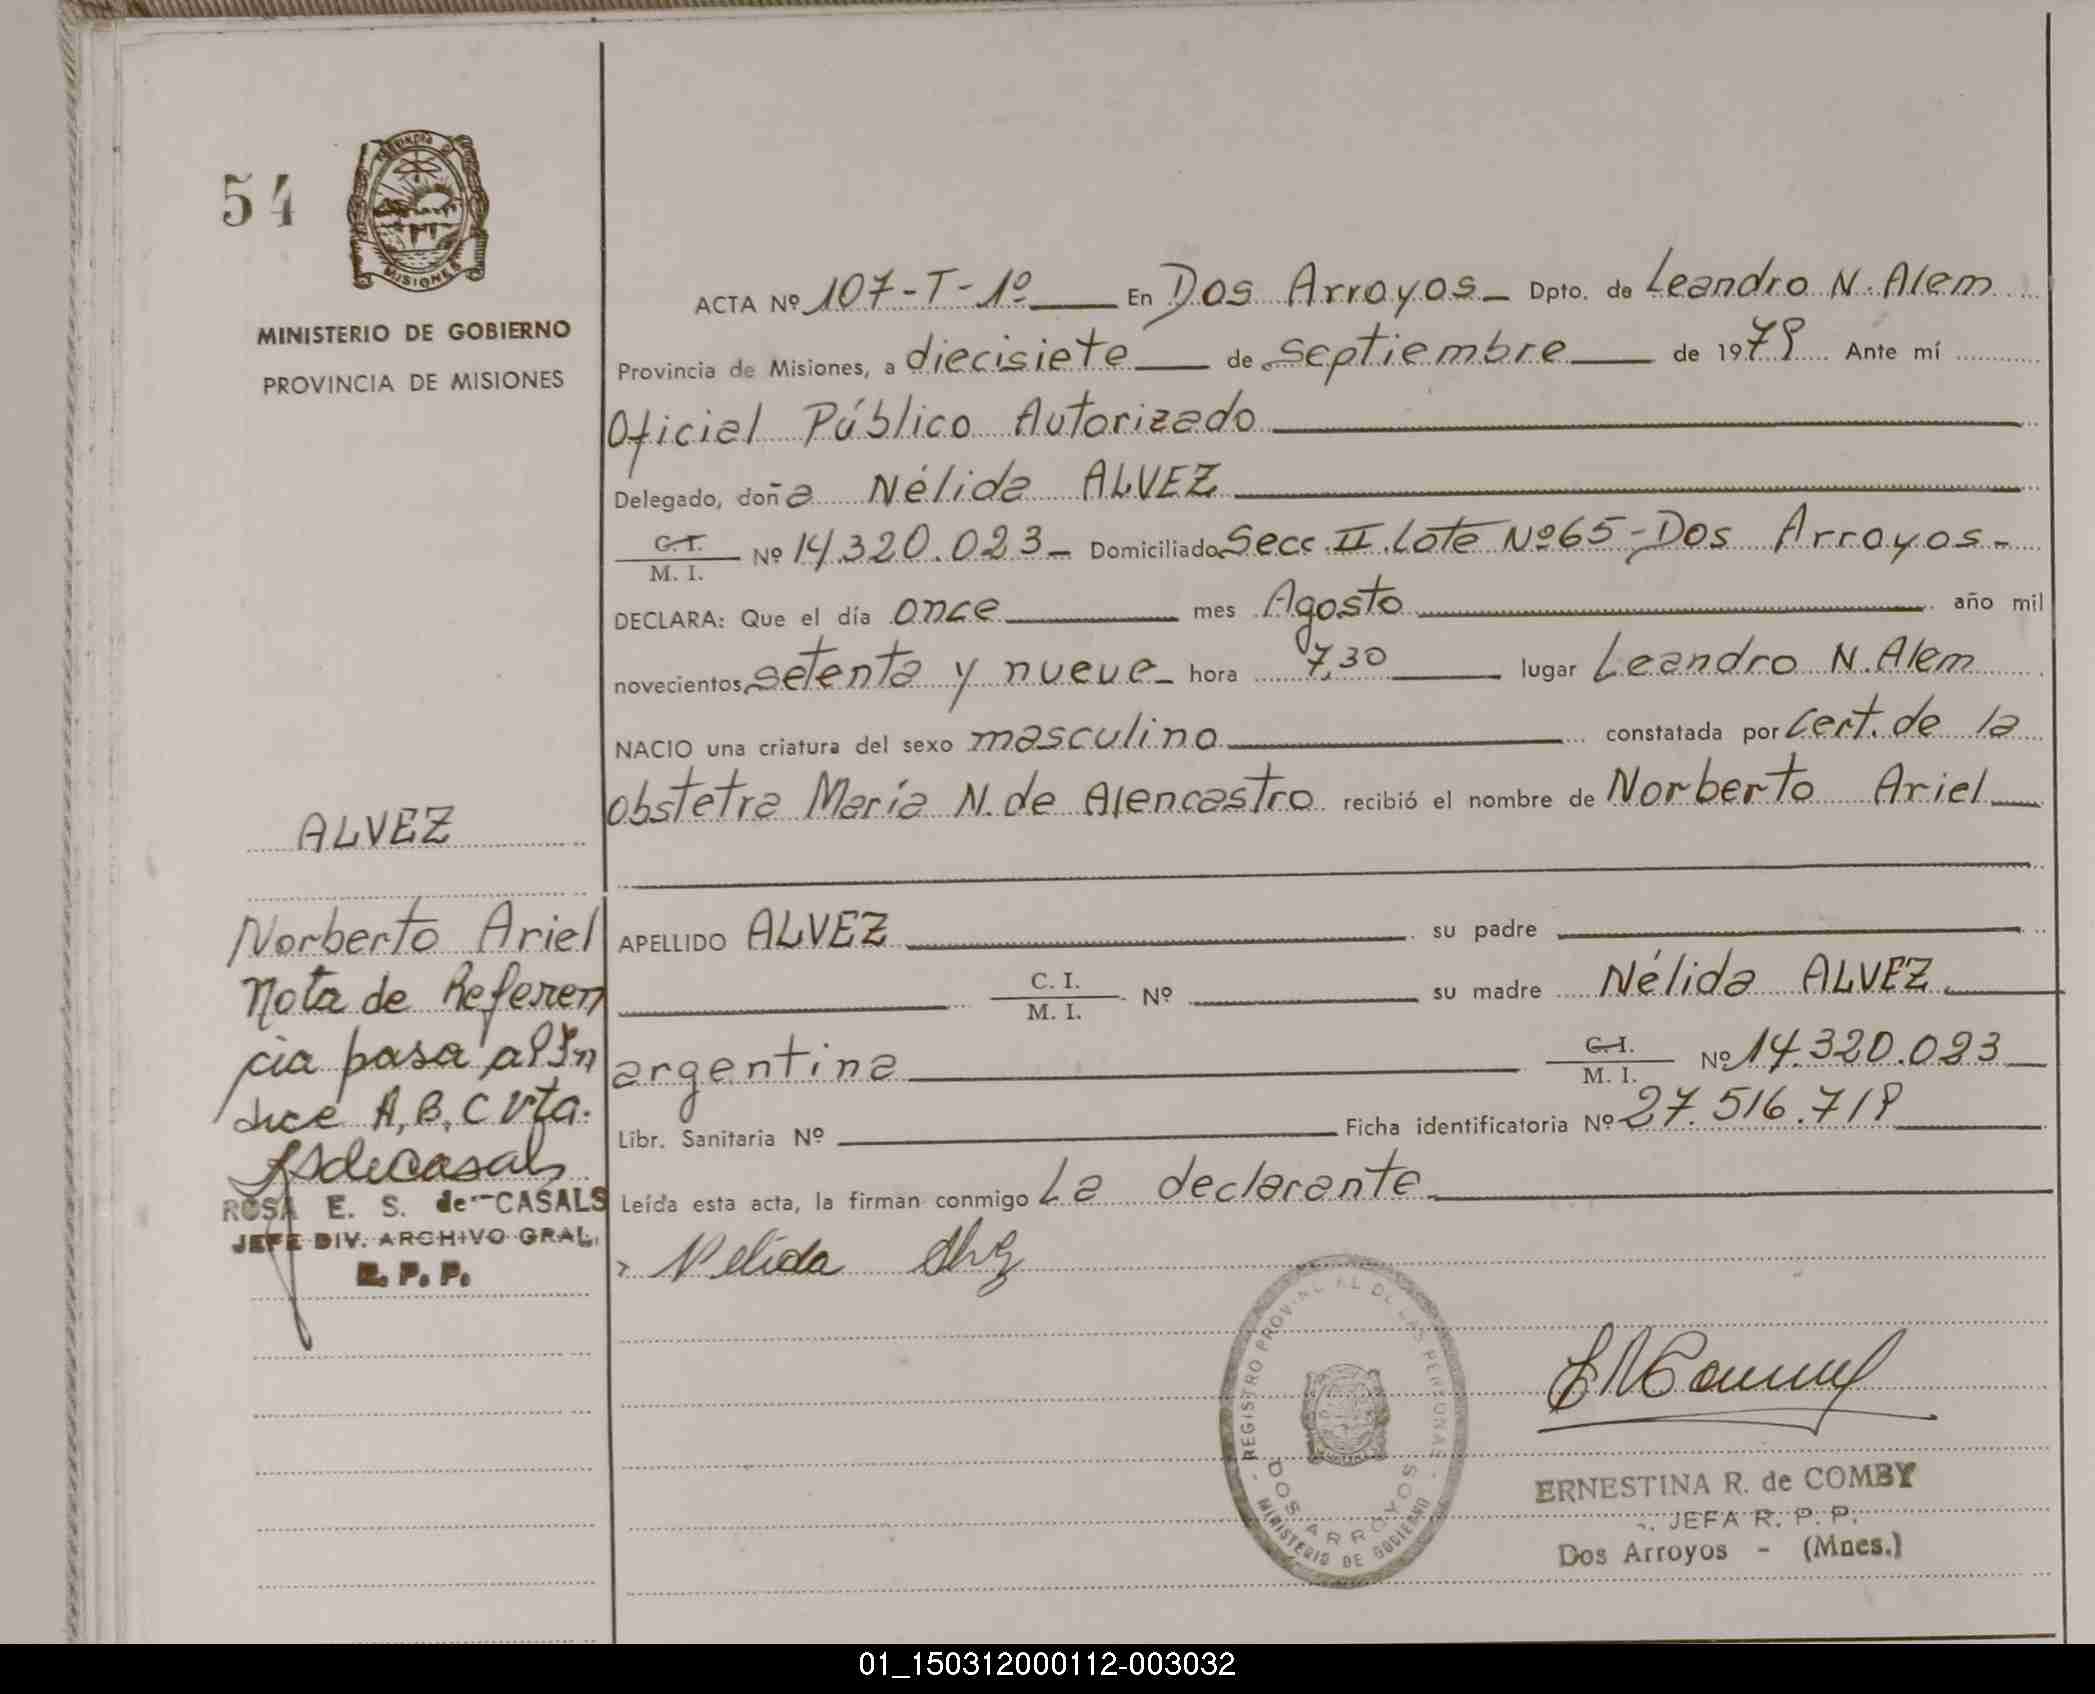 54
PROVINCIA DE MISIONES
MINISTERIO DE GOBIERNO
PROVINCIA DE MISIONES
ACTA Nº 107-T-1º En Dos Arroyos Dpto. de Leandro N. Alem
Provincia de Misiones, a diecisiete de septiembre de 1979 Ante mí
Oficial Público Autorizado
Delegado, doña Nélida ALVEZ
C.I. M. I. Nº 14.320.023 Domiciliado Secc II Lote Nº 65 - Dos Arroyos -
DECLARA: Que el día once mes Agosto año mil
novecientos setenta y nueve hora 7,30 lugar Leandro N. Alem
NACIO una criatura del sexo masculino constatada por Cert. de la
obstetra María N. de Alencastro recibió el nombre de Norberto Ariel
ALVEZ
Norberto Ariel
Nota de Referen
cia pasa al Ín
dice A, B, C vta.
ROSA E. S. de CASALS
JEFE DIV. ARCHIVO GRAL.
R. P. P.
APELLIDO ALVEZ su padre
C. I. M. I. Nº su madre Nélida ALVEZ
argentina C.I. M. I. Nº 14.320.023
Libr. Sanitaria Nº Ficha identificatoria Nº 27.516.719
Leída esta acta, la firman conmigo La declarante
Nelida
REGISTRO PROVINCIAL DE LAS PERSONAS
DOS ARROYOS
MINISTERIO DE GOBIERNO
ERNESTINA R. de COMBY
JEFA R. P. P.
Dos Arroyos - (Mnes.)
01_150312000112-003032